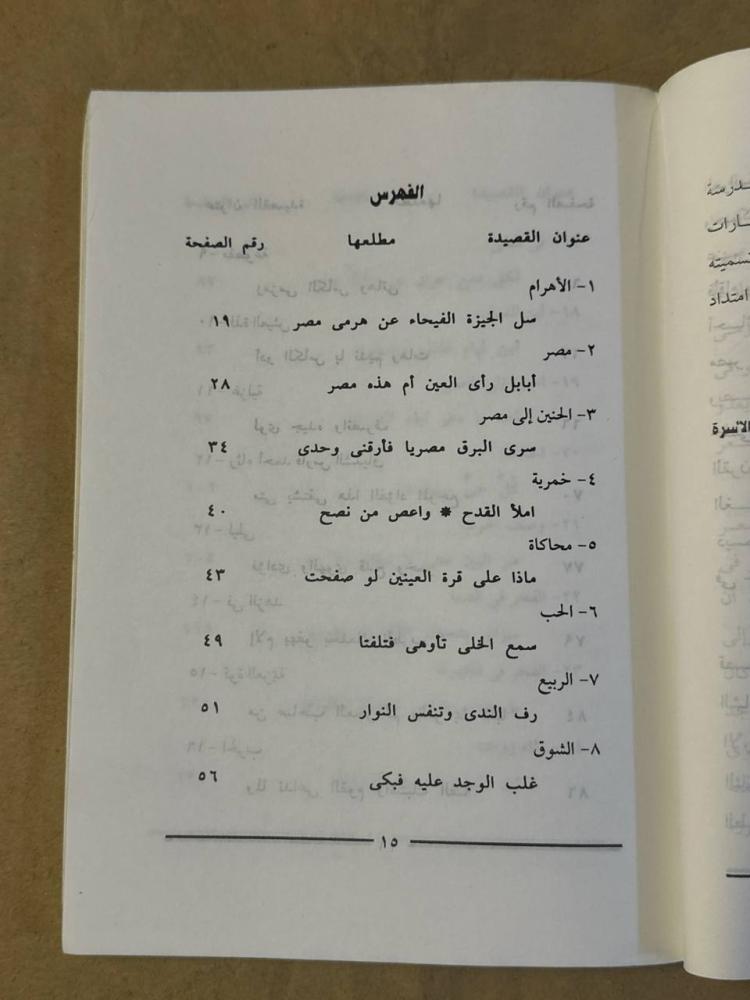 الفهرس
عنوان القصيدة مطلعها رقم الصفحة
١- الأهرام
سل الجيزة الفيحاء عن هرمى مصر ١٩
٢- مصر
أبابل رأى العين أم هذه مصر ٢٨
٣- الحنين إلى مصر
سرى البرق مصريا فأرقنى وحدى ٣٤
٤- خمرية
املأ القدح * واعص من نصح ٤٠
٥- محاكاة
ماذا على قرة العينين لو صفحت ٤٣
٦- الحب
سمع الخلى تأوهى فتلفتا ٤٩
٧- الربيع
رف الندى وتنفس النوار ٥١
٨- الشوق
غلب الوجد عليه فبكى ٥٦
١٥
تسميته
امتداد
الأسرة